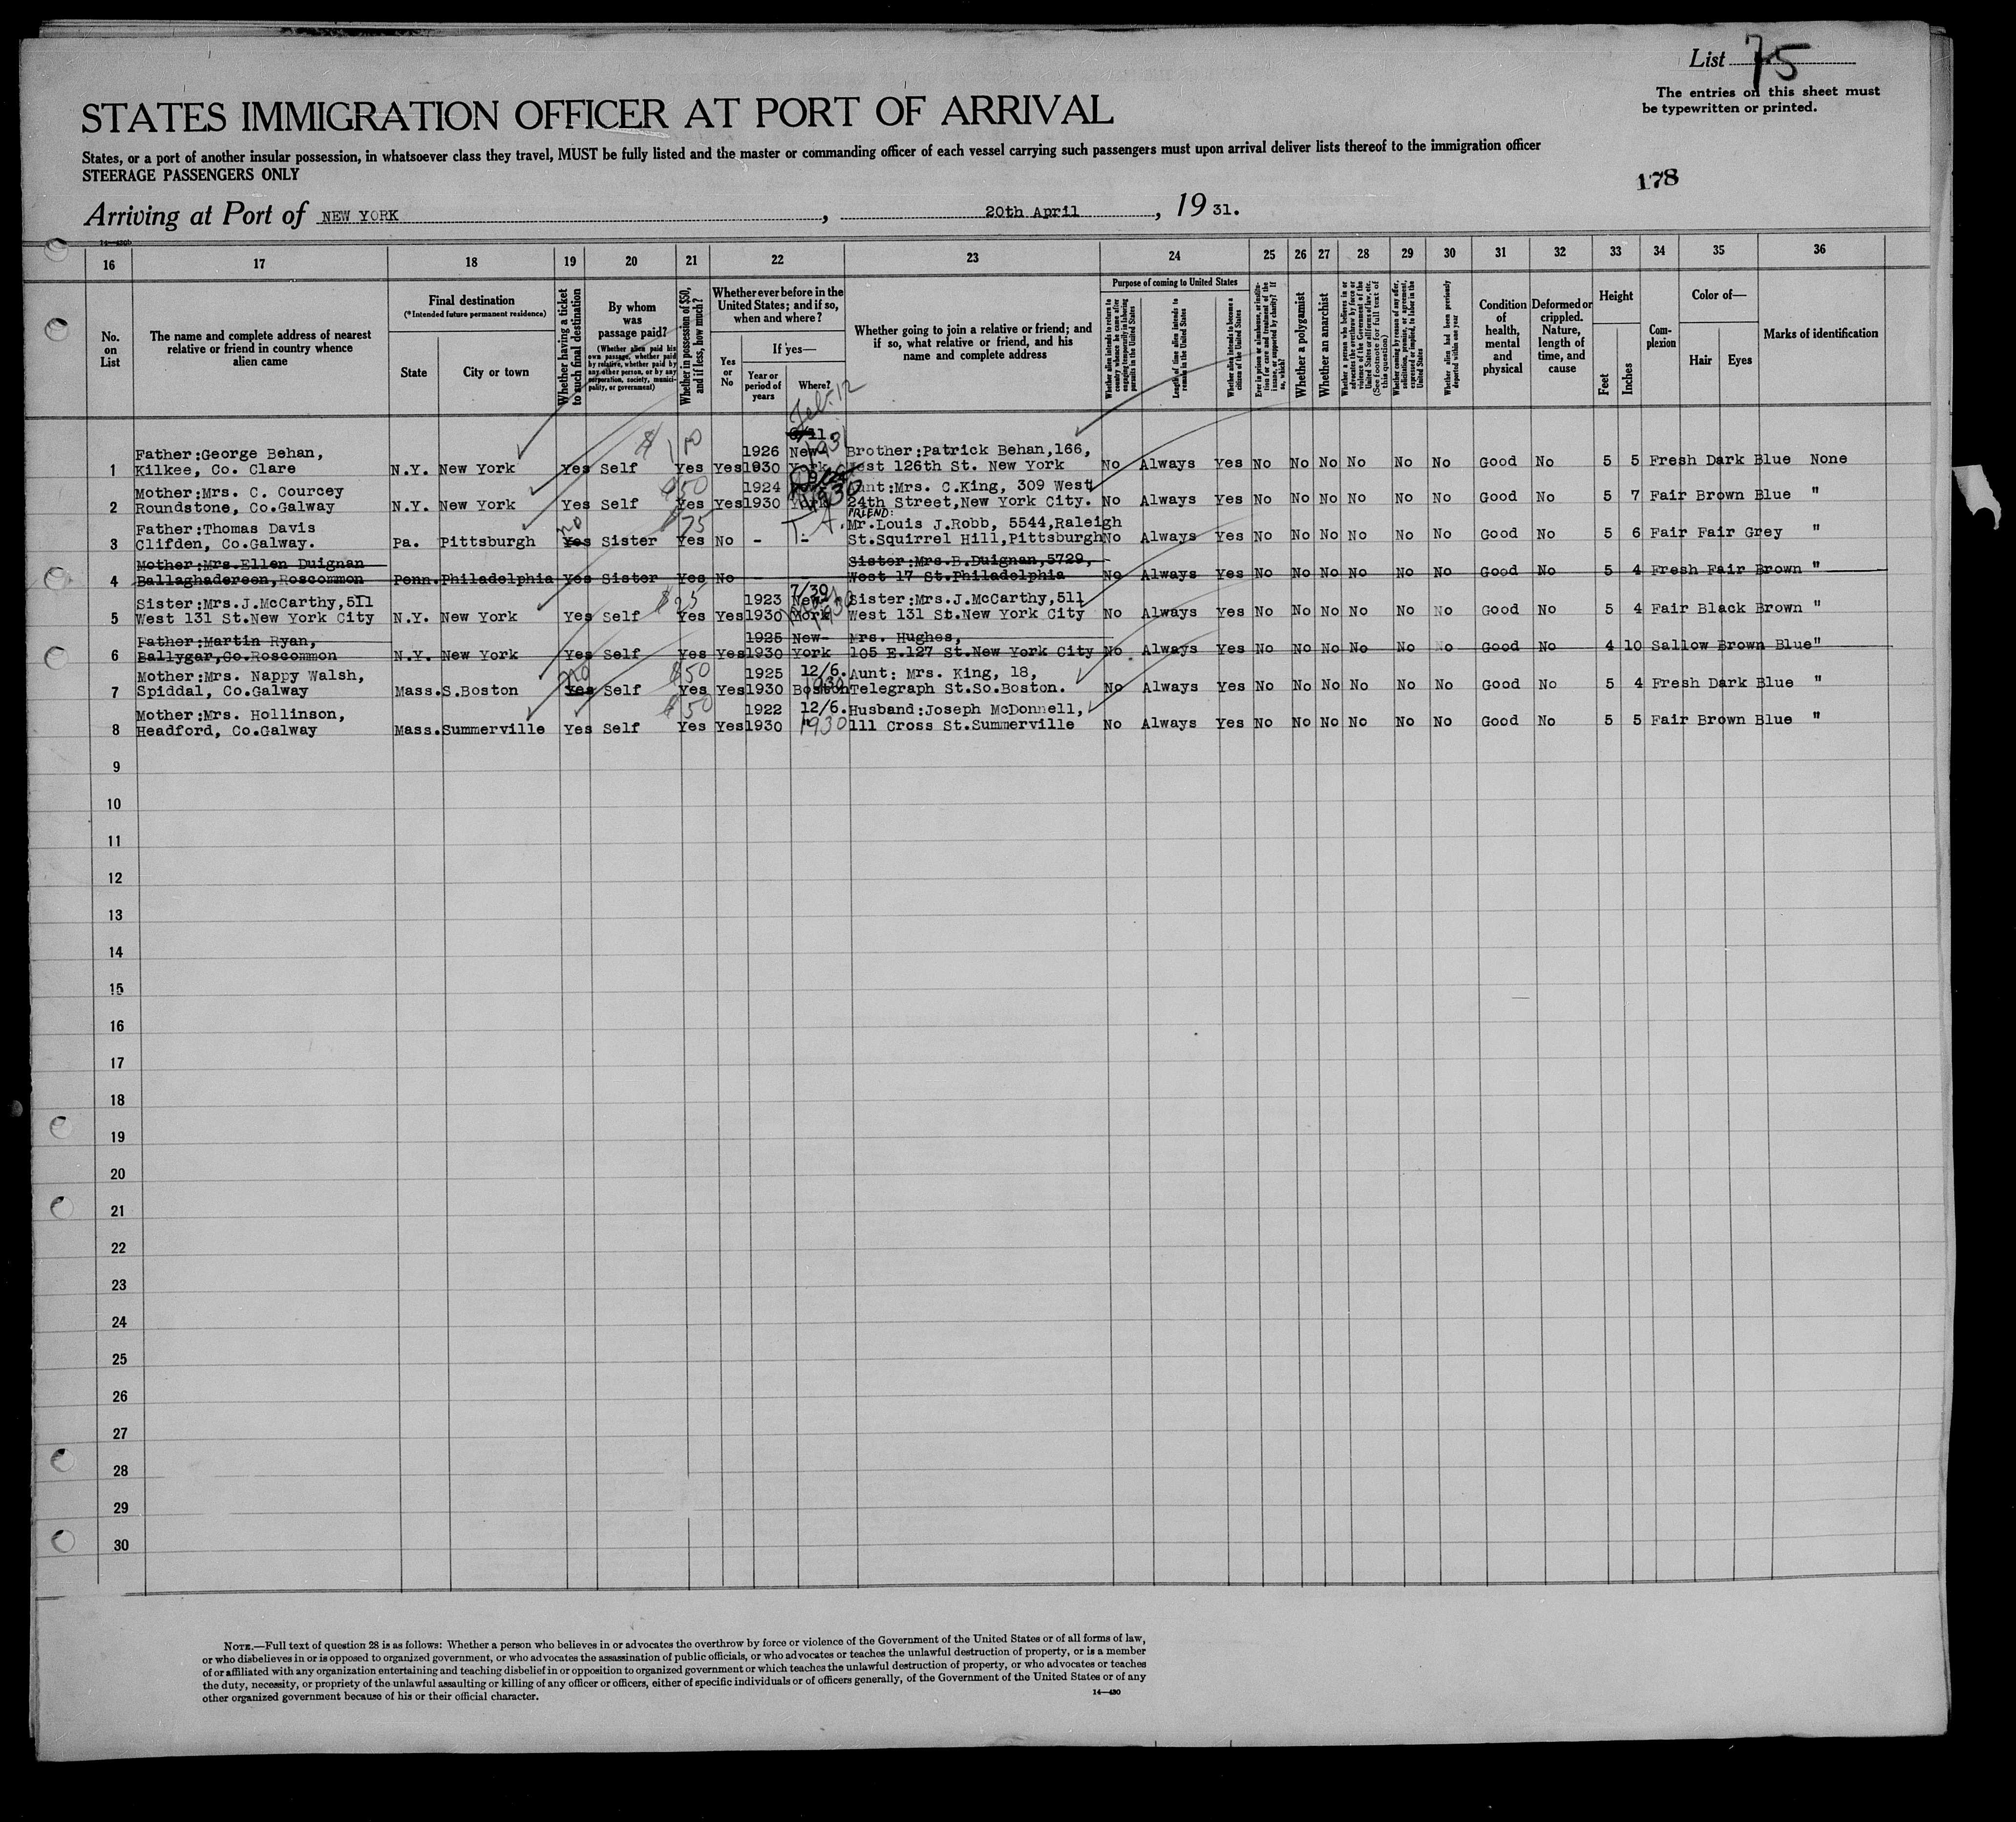 List 75
The entries on this sheet must
be typewritten or printed.
STATES IMMIGRATION OFFICER AT PORT OF ARRIVAL
States, or a port of another insular possession, in whatsoever class they travel, MUST be fully listed and the master or commanding officer of each vessel carrying such passengers must upon arrival deliver lists thereof to the immigration officer
STEERAGE PASSENGERS ONLY
178
Arriving at Port of NEW YORK, 20th April, 19 31.
16 17 18 19 20 21 22 23 24 25 26 27 28 29 30 31 32 33 34 35 36
No. on List
The name and complete address of nearest
relative or friend in country whence
alien came
Final destination
(*Intended future permanent residence)
State
City or town
Whether having a ticket
to such final destination
By whom
was
passage paid?
(Whether alien paid his
own passage, whether paid
by relative, whether paid by
any other person, or by any
corporation, society, munici-
pality, or government)
Whether in possession of $50,
and if less, how much?
Whether ever before in the
United States; and if so,
when and where?
Yes
or
No
If yes—
Year or
period of
years
Where?
Whether going to join a relative or friend; and
if so, what relative or friend, and his
name and complete address
Purpose of coming to United States
Whether alien intends to return to
country whence he came after
engaging temporarily in laboring
pursuits in the United States
Length of time alien intends to
remain in the United States
Whether alien intends to become a
citizen of the United States
Ever in prison or almshouse, or institu-
tion for care and treatment of the
insane, or supported by charity? If
so, which?
Whether a polygamist
Whether an anarchist
Whether a person who believes in or
advocates the overthrow by force or
violence of the Government of the
United States or all forms of law, etc.
(See footnote for full text of
this question)
Whether coming by reason of any offer,
solicitation, promise, or agreement,
expressed or implied, to labor in the
United States
Whether alien had been previously
deported within one year
Condition
of
health,
mental
and
physical
Deformed or
crippled.
Nature,
length of
time, and
cause
Height
Feet
Inches
Com-
plexion
Color of—
Hair
Eyes
Marks of identification
Feb. 12
$ 100 1931
Father:George Behan, 1926 New- Brother:Patrick Behan,166,
1 Kilkee, Co. Clare N.Y. New York Yes Self Yes Yes 1930 York West 126th St. New York No Always Yes No No No No No No Good No 5 5 Fresh Dark Blue None
Mother:Mrs. C. Courcey $50 1924 Aunt:Mrs. C.King, 309 West
2 Roundstone, Co.Galway N.Y. New York Yes Self Yes Yes 1930 York 1930 24th Street,New York City. No Always Yes No No No No No No Good No 5 7 Fair Brown Blue "
FRIEND:
Father:Thomas Davis no 75 Mr.Louis J.Robb, 5544,Raleigh
3 Clifden, Co.Galway. Pa. Pittsburgh Yes Sister Yes No - - St.Squirrel Hill,Pittsburgh No Always Yes No No No No No No Good No 5 6 Fair Fair Grey "
Mother:Mrs.Ellen Duignan Sister:Mrs.B.Duignan,5729,
4 Ballaghadereen,Roscommon Penn. Philadelphia Yes Sister Yes No - - West 17 St.Philadelphia No Always Yes No No No No No No Good No 5 4 Fresh Fair Brown "
Sister:Mrs.J.McCarthy,511 $25 1923 7/30 New- Sister:Mrs.J.McCarthy,511
5 West 131 St.New York City N.Y. New York Yes Self Yes Yes 1930 York West 131 St.New York City No Always Yes No No No No No No Good No 5 4 Fair Black Brown "
Father:Martin Ryan, 1925 New- Mrs. Hughes,
6 Ballygar,Co.Roscommon N.Y. New York Yes Self Yes Yes 1930 York 105 E.127 St.New York City No Always Yes No No No No No No Good No 4 10 Sallow Brown Blue "
Mother:Mrs. Nappy Walsh, no $50 1925 12/6. 1930 Aunt: Mrs. King, 18,
7 Spiddal, Co.Galway Mass. S.Boston Yes Self Yes Yes 1930 Boston Telegraph St.So.Boston. No Always Yes No No No No No No Good No 5 4 Fresh Dark Blue "
Mother:Mrs. Hollinson, $50 1922 12/6. Husband:Joseph McDonnell,
8 Headford, Co.Galway Mass. Summerville Yes Self Yes Yes 1930 " 1930 111 Cross St.Summerville No Always Yes No No No No No No Good No 5 5 Fair Brown Blue "
9
10
11
12
13
14
15
16
17
18
19
20
21
22
23
24
25
26
27
28
29
30
NOTE.—Full text of question 28 is as follows: Whether a person who believes in or advocates the overthrow by force or violence of the Government of the United States or of all forms of law,
or who disbelieves in or is opposed to organized government, or who advocates the assassination of public officials, or who advocates or teaches the unlawful destruction of property, or is a member
of or affiliated with any organization entertaining and teaching disbelief in or opposition to organized government or which teaches the unlawful destruction of property, or who advocates or teaches
the duty, necessity, or propriety of the unlawful assaulting or killing of any officer or officers, either of specific individuals or of officers generally, of the Government of the United States or of any
other organized government because of his or their official character.
14—430